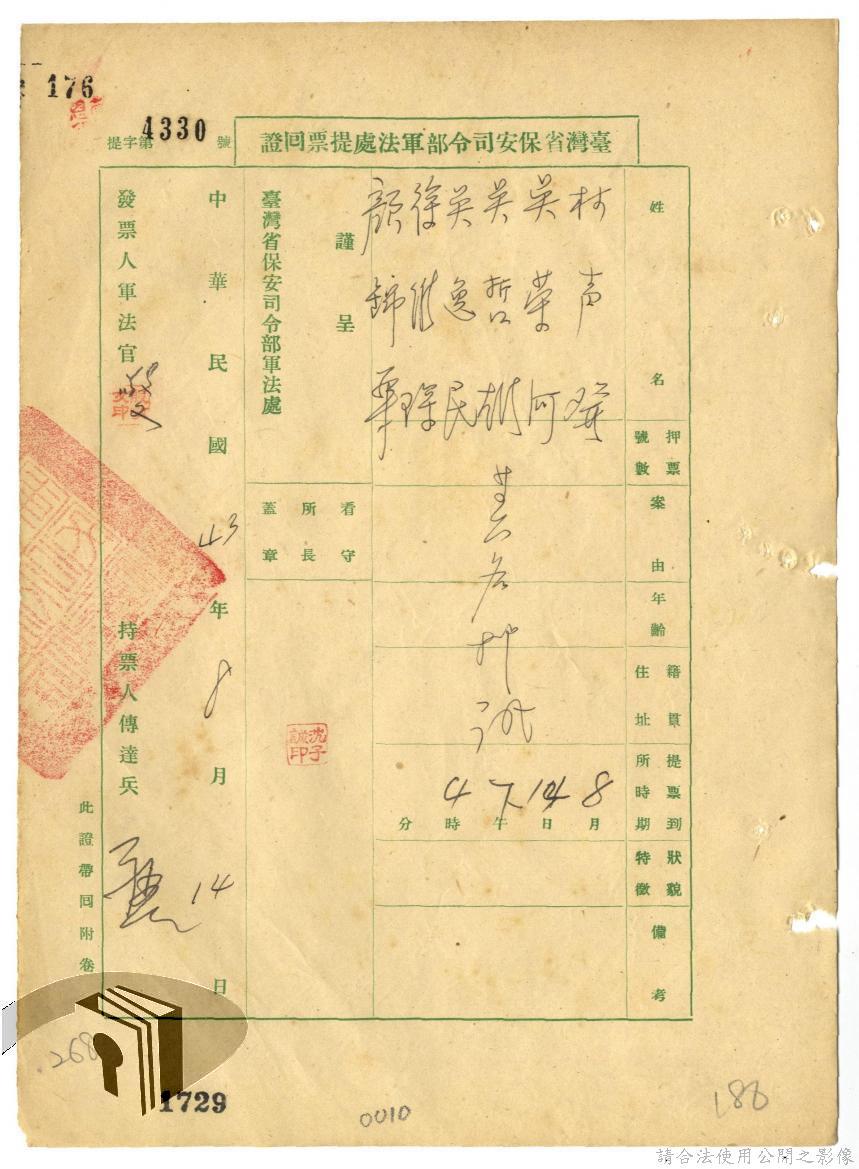 176
提字第4330號
臺灣省保安司令部軍法處提票回證
姓名
林声發
吳榮河
吳哲
吳逸民
徐
顏錦華
押票號數
案由
年齡
籍貫住址
提票到所時期
8月14日下午4時 分
狀貌特徵
備考
共六名
謹呈
臺灣省保安司令部軍法處
看守所長蓋章
沈子誠印
中華民國43年8月14日
發票人軍法官
持票人傳達兵
此證帶回附卷
268
1729
0010
188
請合法使用公開之影像